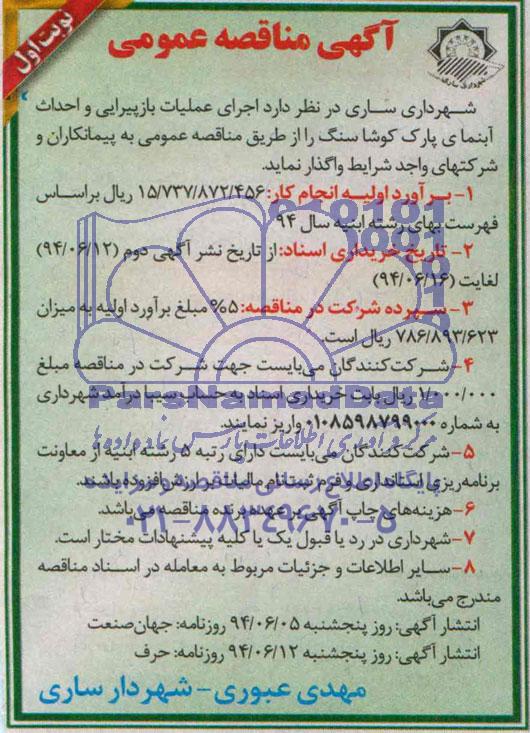 نوبت اول
آگهی مناقصه عمومی
شهرداری ساری
شهرداری ساری در نظر دارد اجرای عملیات بازپیرایی و احداث
آبنمای پارک کوشا سنگ را از طریق مناقصه عمومی به پیمانکاران و
شرکتهای واجد شرایط واگذار نماید.
۱- برآورد اولیه انجام کار: ۱۵/۷۳۷/۸۷۲/۴۵۶ ریال براساس
فهرست بهای رشته ابنیه سال ۹۴
۲- تاریخ خریداری اسناد: از تاریخ نشر آگهی دوم (۹۴/۰۶/۱۲)
لغایت (۹۴/۰۶/۱۶)
۳- سپرده شرکت در مناقصه: ۵% مبلغ برآورد اولیه به میزان
۷۸۶/۸۹۳/۶۲۳ ریال است.
۴- شرکت‌کنندگان می‌بایست جهت شرکت در مناقصه مبلغ
۱/۰۰۰/۰۰۰ ریال بابت خریداری اسناد به حساب سیبا درآمد شهرداری
به شماره ۰۱۰۸۵۹۸۷۹۹۰۰۰ واریز نمایند.
۵- شرکت‌کنندگان می‌بایست دارای رتبه ۵ رشته ابنیه از معاونت
برنامه‌ریزی استانداری و فرم ثبت‌نام مالیات بر ارزش افزوده باشند.
۶- هزینه‌های چاپ آگهی بر عهده برنده مناقصه می‌باشد.
۷- شهرداری در رد یا قبول یک یا کلیه پیشنهادات مختار است.
۸- سایر اطلاعات و جزئیات مربوط به معامله در اسناد مناقصه
مندرج می‌باشد.
انتشار آگهی: روز پنجشنبه ۹۴/۰۶/۰۵ روزنامه: جهان‌صنعت
انتشار آگهی: روز پنجشنبه ۹۴/۰۶/۱۲ روزنامه: حرف
مهدی عبوری - شهردار ساری
ParsNamadData
مرکز فرآوری اطلاعات پارس نماد داده‌ها
پایگاه اطلاع رسانی مناقصه و مزایده
۰۲۱-۸۸۳۴۹۶۷۰-۵